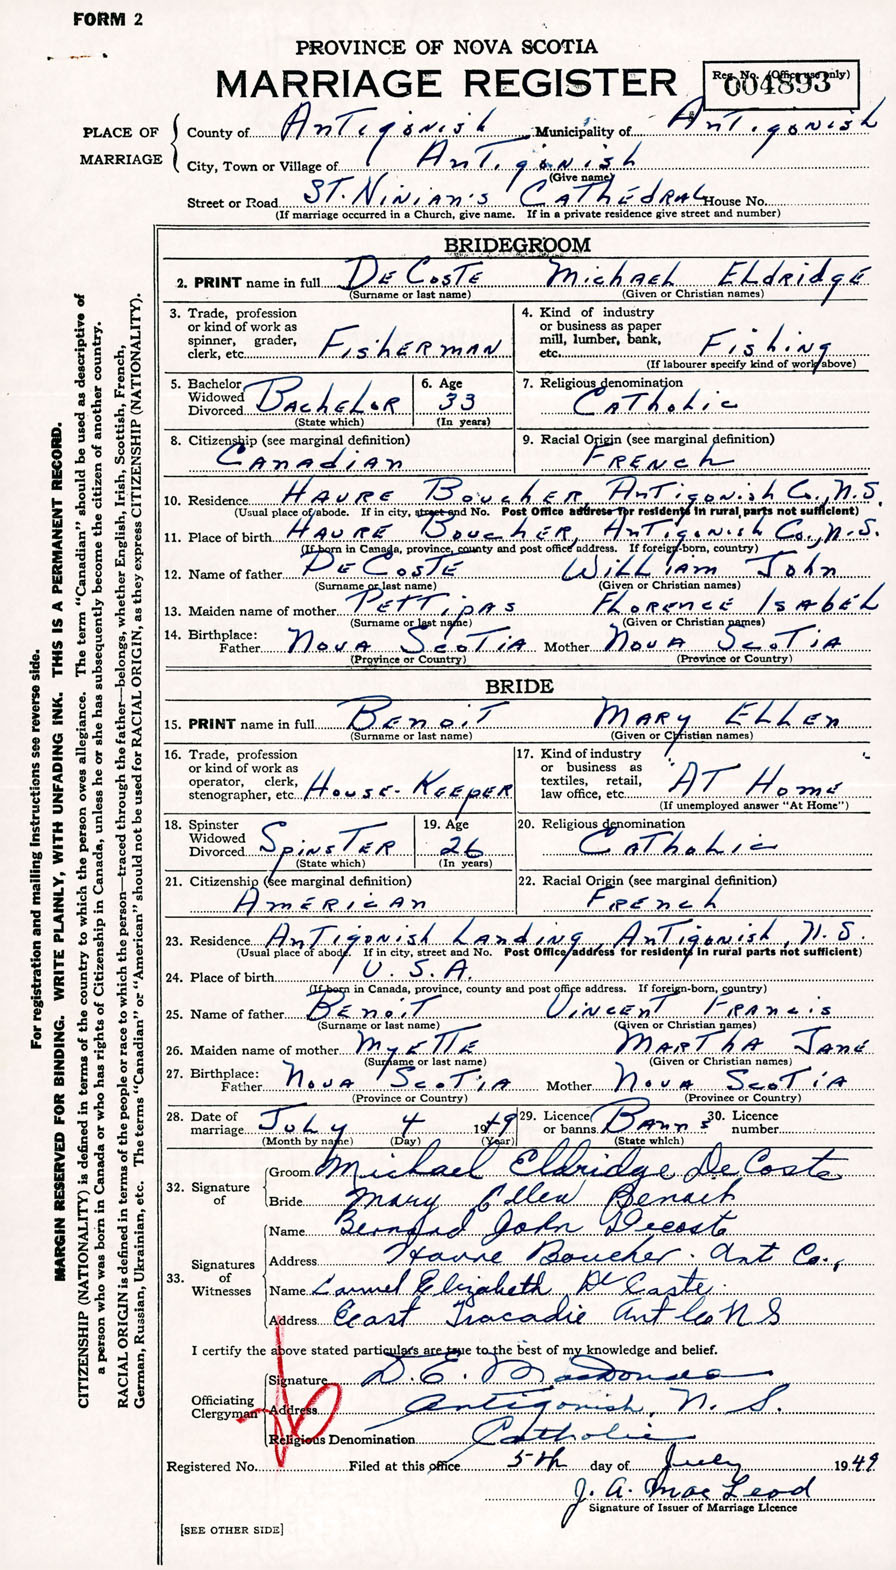 FORM 2
PROVINCE OF NOVA SCOTIA
MARRIAGE REGISTER
Reg. No. (Office use only)
004893
PLACE OF MARRIAGE
County of Antigonish Municipality of Antigonish
City, Town or Village of Antigonish
(Give name)
Street or Road ST. Ninian's Cathedral House No.
(If marriage occurred in a Church, give name. If in a private residence give street and number)
BRIDEGROOM
2. PRINT name in full DeCoste Michael Eldridge
(Surname or last name) (Given or Christian names)
3. Trade, profession or kind of work as spinner, grader, clerk, etc. Fisherman
4. Kind of industry or business as paper mill, lumber, bank, etc. Fishing
(If labourer specify kind of work above)
5. Bachelor Widowed Divorced Bachelor
(State which)
6. Age 33
(In years)
7. Religious denomination
Catholic
8. Citizenship (see marginal definition)
Canadian
9. Racial Origin (see marginal definition)
French
10. Residence Havre Boucher, Antigonish Co., N.S.
(Usual place of abode. If in city, street and No. Post Office address for residents in rural parts not sufficient)
11. Place of birth Havre Boucher, Antigonish Co., N.S.
(If born in Canada, province, county and post office address. If foreign-born, country)
12. Name of father DeCoste William John
(Surname or last name) (Given or Christian names)
13. Maiden name of mother Pettipas Florence Isabel
(Surname or last name) (Given or Christian names)
14. Birthplace:
Father Nova Scotia Mother Nova Scotia
(Province or Country) (Province or Country)
BRIDE
15. PRINT name in full Benoit Mary Ellen
(Surname or last name) (Given or Christian names)
16. Trade, profession or kind of work as operator, clerk, stenographer, etc. House-Keeper
17. Kind of industry or business as textiles, retail, law office, etc. At Home
(If unemployed answer "At Home")
18. Spinster Widowed Divorced Spinster
(State which)
19. Age 26
(In years)
20. Religious denomination
Catholic
21. Citizenship (see marginal definition)
American
22. Racial Origin (see marginal definition)
French
23. Residence Antigonish Landing, Antigonish, N.S.
(Usual place of abode. If in city, street and No. Post Office address for residents in rural parts not sufficient)
24. Place of birth U.S.A.
(If born in Canada, province, county and post office address. If foreign-born, country)
25. Name of father Benoit Vincent Francis
(Surname or last name) (Given or Christian names)
26. Maiden name of mother Myette Martha Jane
(Surname or last name) (Given or Christian names)
27. Birthplace:
Father Nova Scotia Mother Nova Scotia
(Province or Country) (Province or Country)
28. Date of marriage July 4 1949
(Month by name) (Day) (Year)
29. Licence or banns Banns
(State which)
30. Licence number
32. Signature of
Groom Michael Eldridge DeCoste
Bride Mary Ellen Benoit
33. Signatures of Witnesses
Name Bernard John Decoste
Address Havre Boucher. Ant Co.,
Name Carmel Elizabeth De Coste
Address East Tracadie Ant Co N S
I certify the above stated particulars are true to the best of my knowledge and belief.
Officiating Clergyman
Signature D. E. MacDonald
Address Antigonish, N. S.
Religious Denomination Catholic
Registered No. Filed at this office 5th day of July 1949
J. A. MacLeod
Signature of Issuer of Marriage Licence
[SEE OTHER SIDE]
For registration and mailing instructions see reverse side.
MARGIN RESERVED FOR BINDING. WRITE PLAINLY, WITH UNFADING INK. THIS IS A PERMANENT RECORD.
CITIZENSHIP (NATIONALITY) is defined in terms of the country to which the person owes allegiance. The term "Canadian" should be used as descriptive of
a person who was born in Canada or who has rights of Citizenship in Canada, unless he or she has subsequently become the citizen of another country.
RACIAL ORIGIN is defined in terms of the people or race to which the person—traced through the father—belongs, whether English, Irish, Scottish, French,
German, Russian, Ukrainian, etc. The terms "Canadian" or "American" should not be used for RACIAL ORIGIN, as they express CITIZENSHIP (NATIONALITY).